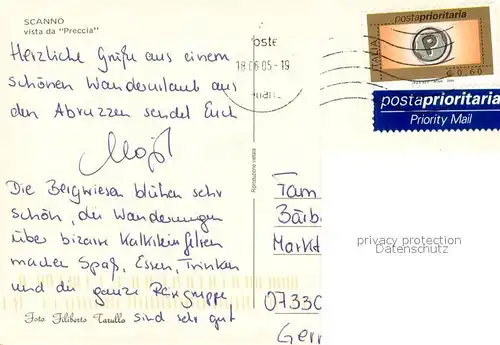 SCANNO
vista da "Preccia"
Herzliche Grüße aus einem
schönen Wanderurlaub aus
den Abruzzen sendet Euch
Die Bergwiesen blühen sehr
schön, die Wanderungen
über bizarre Kalksteinfelsen
machen Spaß, Essen, Trinken
und die ganze Reisegruppe
sind sehr gut
Foto Filiberto Tarullo
Riproduzione vietata
oste
18.06.05-19
postaprioritaria
ITALIA
P
€ 0,60
postaprioritaria
Priority Mail
Fam
Bärb
Markt
07330
Gerr
privacy protection
Datenschutz